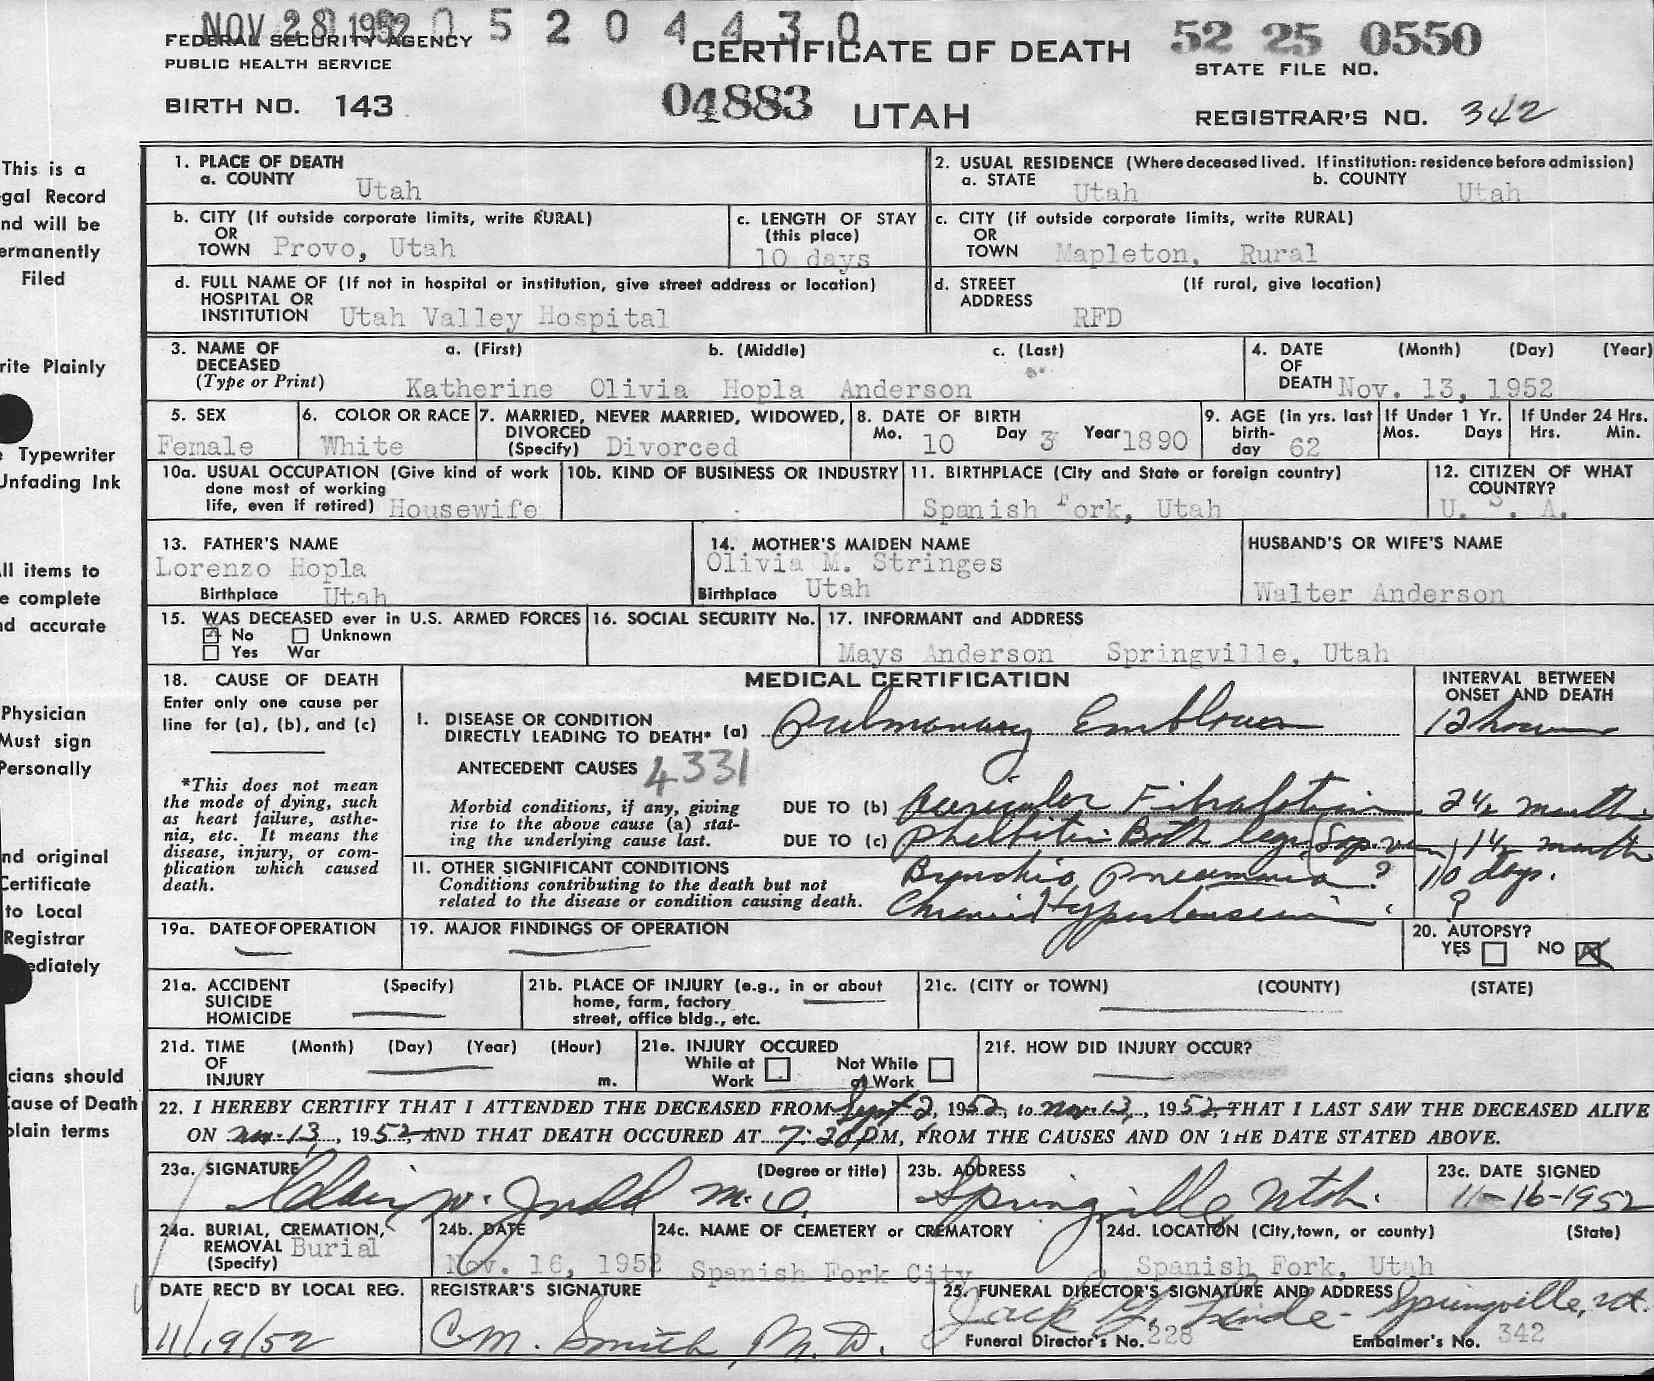 NOV 28 1952 0 5 2 0 4 4 3 0
FEDERAL SECURITY AGENCY
PUBLIC HEALTH SERVICE
CERTIFICATE OF DEATH
52 25 0550
STATE FILE NO.
BIRTH NO. 143
04883 UTAH
REGISTRAR'S NO. 342
This is a
gal Record
nd will be
ermanently
Filed
rite Plainly
Typewriter
Unfading Ink
ll items to
e complete
nd accurate
Physician
Must sign
Personally
nd original
Certificate
to Local
Registrar
ediately
cians should
Cause of Death
plain terms
1. PLACE OF DEATH
a. COUNTY Utah
2. USUAL RESIDENCE (Where deceased lived. If institution: residence before admission)
a. STATE Utah b. COUNTY Utah
b. CITY (If outside corporate limits, write RURAL)
OR
TOWN Provo, Utah
c. LENGTH OF STAY
(this place)
10 days
c. CITY (if outside corporate limits, write RURAL)
OR
TOWN Mapleton, Rural
d. FULL NAME OF (If not in hospital or institution, give street address or location)
HOSPITAL OR
INSTITUTION Utah Valley Hospital
d. STREET (If rural, give location)
ADDRESS RFD
3. NAME OF a. (First) b. (Middle) c. (Last)
DECEASED
(Type or Print) Katherine Olivia Hopla Anderson
4. DATE (Month) (Day) (Year)
OF
DEATH Nov. 13, 1952
5. SEX
Female
6. COLOR OR RACE
White
7. MARRIED, NEVER MARRIED, WIDOWED,
DIVORCED
(Specify) Divorced
8. DATE OF BIRTH
Mo. 10 Day 3 Year 1890
9. AGE (in yrs. last
birth-
day 62
If Under 1 Yr.
Mos. Days
If Under 24 Hrs.
Hrs. Min.
10a. USUAL OCCUPATION (Give kind of work
done most of working
life, even if retired) Housewife
10b. KIND OF BUSINESS OR INDUSTRY
11. BIRTHPLACE (City and State or foreign country)
Spanish Fork, Utah
12. CITIZEN OF WHAT
COUNTRY?
U. S. A.
13. FATHER'S NAME
Lorenzo Hopla
Birthplace Utah
14. MOTHER'S MAIDEN NAME
Olivia M. Stringes
Birthplace Utah
HUSBAND'S OR WIFE'S NAME
Walter Anderson
15. WAS DECEASED ever in U.S. ARMED FORCES
No Unknown
Yes War
16. SOCIAL SECURITY No.
17. INFORMANT and ADDRESS
Mays Anderson Springville, Utah
18. CAUSE OF DEATH
Enter only one cause per
line for (a), (b), and (c)
*This does not mean
the mode of dying, such
as heart failure, asthe-
nia, etc. It means the
disease, injury, or com-
plication which caused
death.
MEDICAL CERTIFICATION
INTERVAL BETWEEN
ONSET AND DEATH
I. DISEASE OR CONDITION
DIRECTLY LEADING TO DEATH* (a) Pulmonary Embolism 12 hours
ANTECEDENT CAUSES 4331
Morbid conditions, if any, giving
rise to the above cause (a) stat-
ing the underlying cause last.
DUE TO (b) Auricular Fibrillation 2 1/2 months
DUE TO (c) Phlebitis Both legs (Sap. vein) 1 1/2 months
II. OTHER SIGNIFICANT CONDITIONS
Conditions contributing to the death but not
related to the disease or condition causing death.
Bronchio Pneumonia ? 10 days.
Chronic Hypertension ?
19a. DATE OF OPERATION
19. MAJOR FINDINGS OF OPERATION
20. AUTOPSY?
YES NO X
21a. ACCIDENT (Specify)
SUICIDE
HOMICIDE
21b. PLACE OF INJURY (e.g., in or about
home, farm, factory
street, office bldg., etc.
21c. (CITY or TOWN) (COUNTY) (STATE)
21d. TIME (Month) (Day) (Year) (Hour)
OF
INJURY m.
21e. INJURY OCCURED
While at Not While
Work at Work
21f. HOW DID INJURY OCCUR?
22. I HEREBY CERTIFY THAT I ATTENDED THE DECEASED FROM Sept 2, 1952, to Nov. 13, 1952, THAT I LAST SAW THE DECEASED ALIVE
ON Nov. 13, 1952 AND THAT DEATH OCCURED AT 7:20 P.M, FROM THE CAUSES AND ON THE DATE STATED ABOVE.
23a. SIGNATURE (Degree or title)
W. Judd M.D.
23b. ADDRESS
Springville Utah.
23c. DATE SIGNED
11-16-1952
24a. BURIAL, CREMATION,
REMOVAL Burial
(Specify)
24b. DATE
Nov. 16, 1952
24c. NAME OF CEMETERY or CREMATORY
Spanish Fork City
24d. LOCATION (City, town, or county) (State)
Spanish Fork, Utah
DATE REC'D BY LOCAL REG.
11/19/52
REGISTRAR'S SIGNATURE
C.M. Smith, M.D.
25. FUNERAL DIRECTOR'S SIGNATURE AND ADDRESS
Jack Springville, Ut.
Funeral Director's No. 228 Embalmer's No. 342